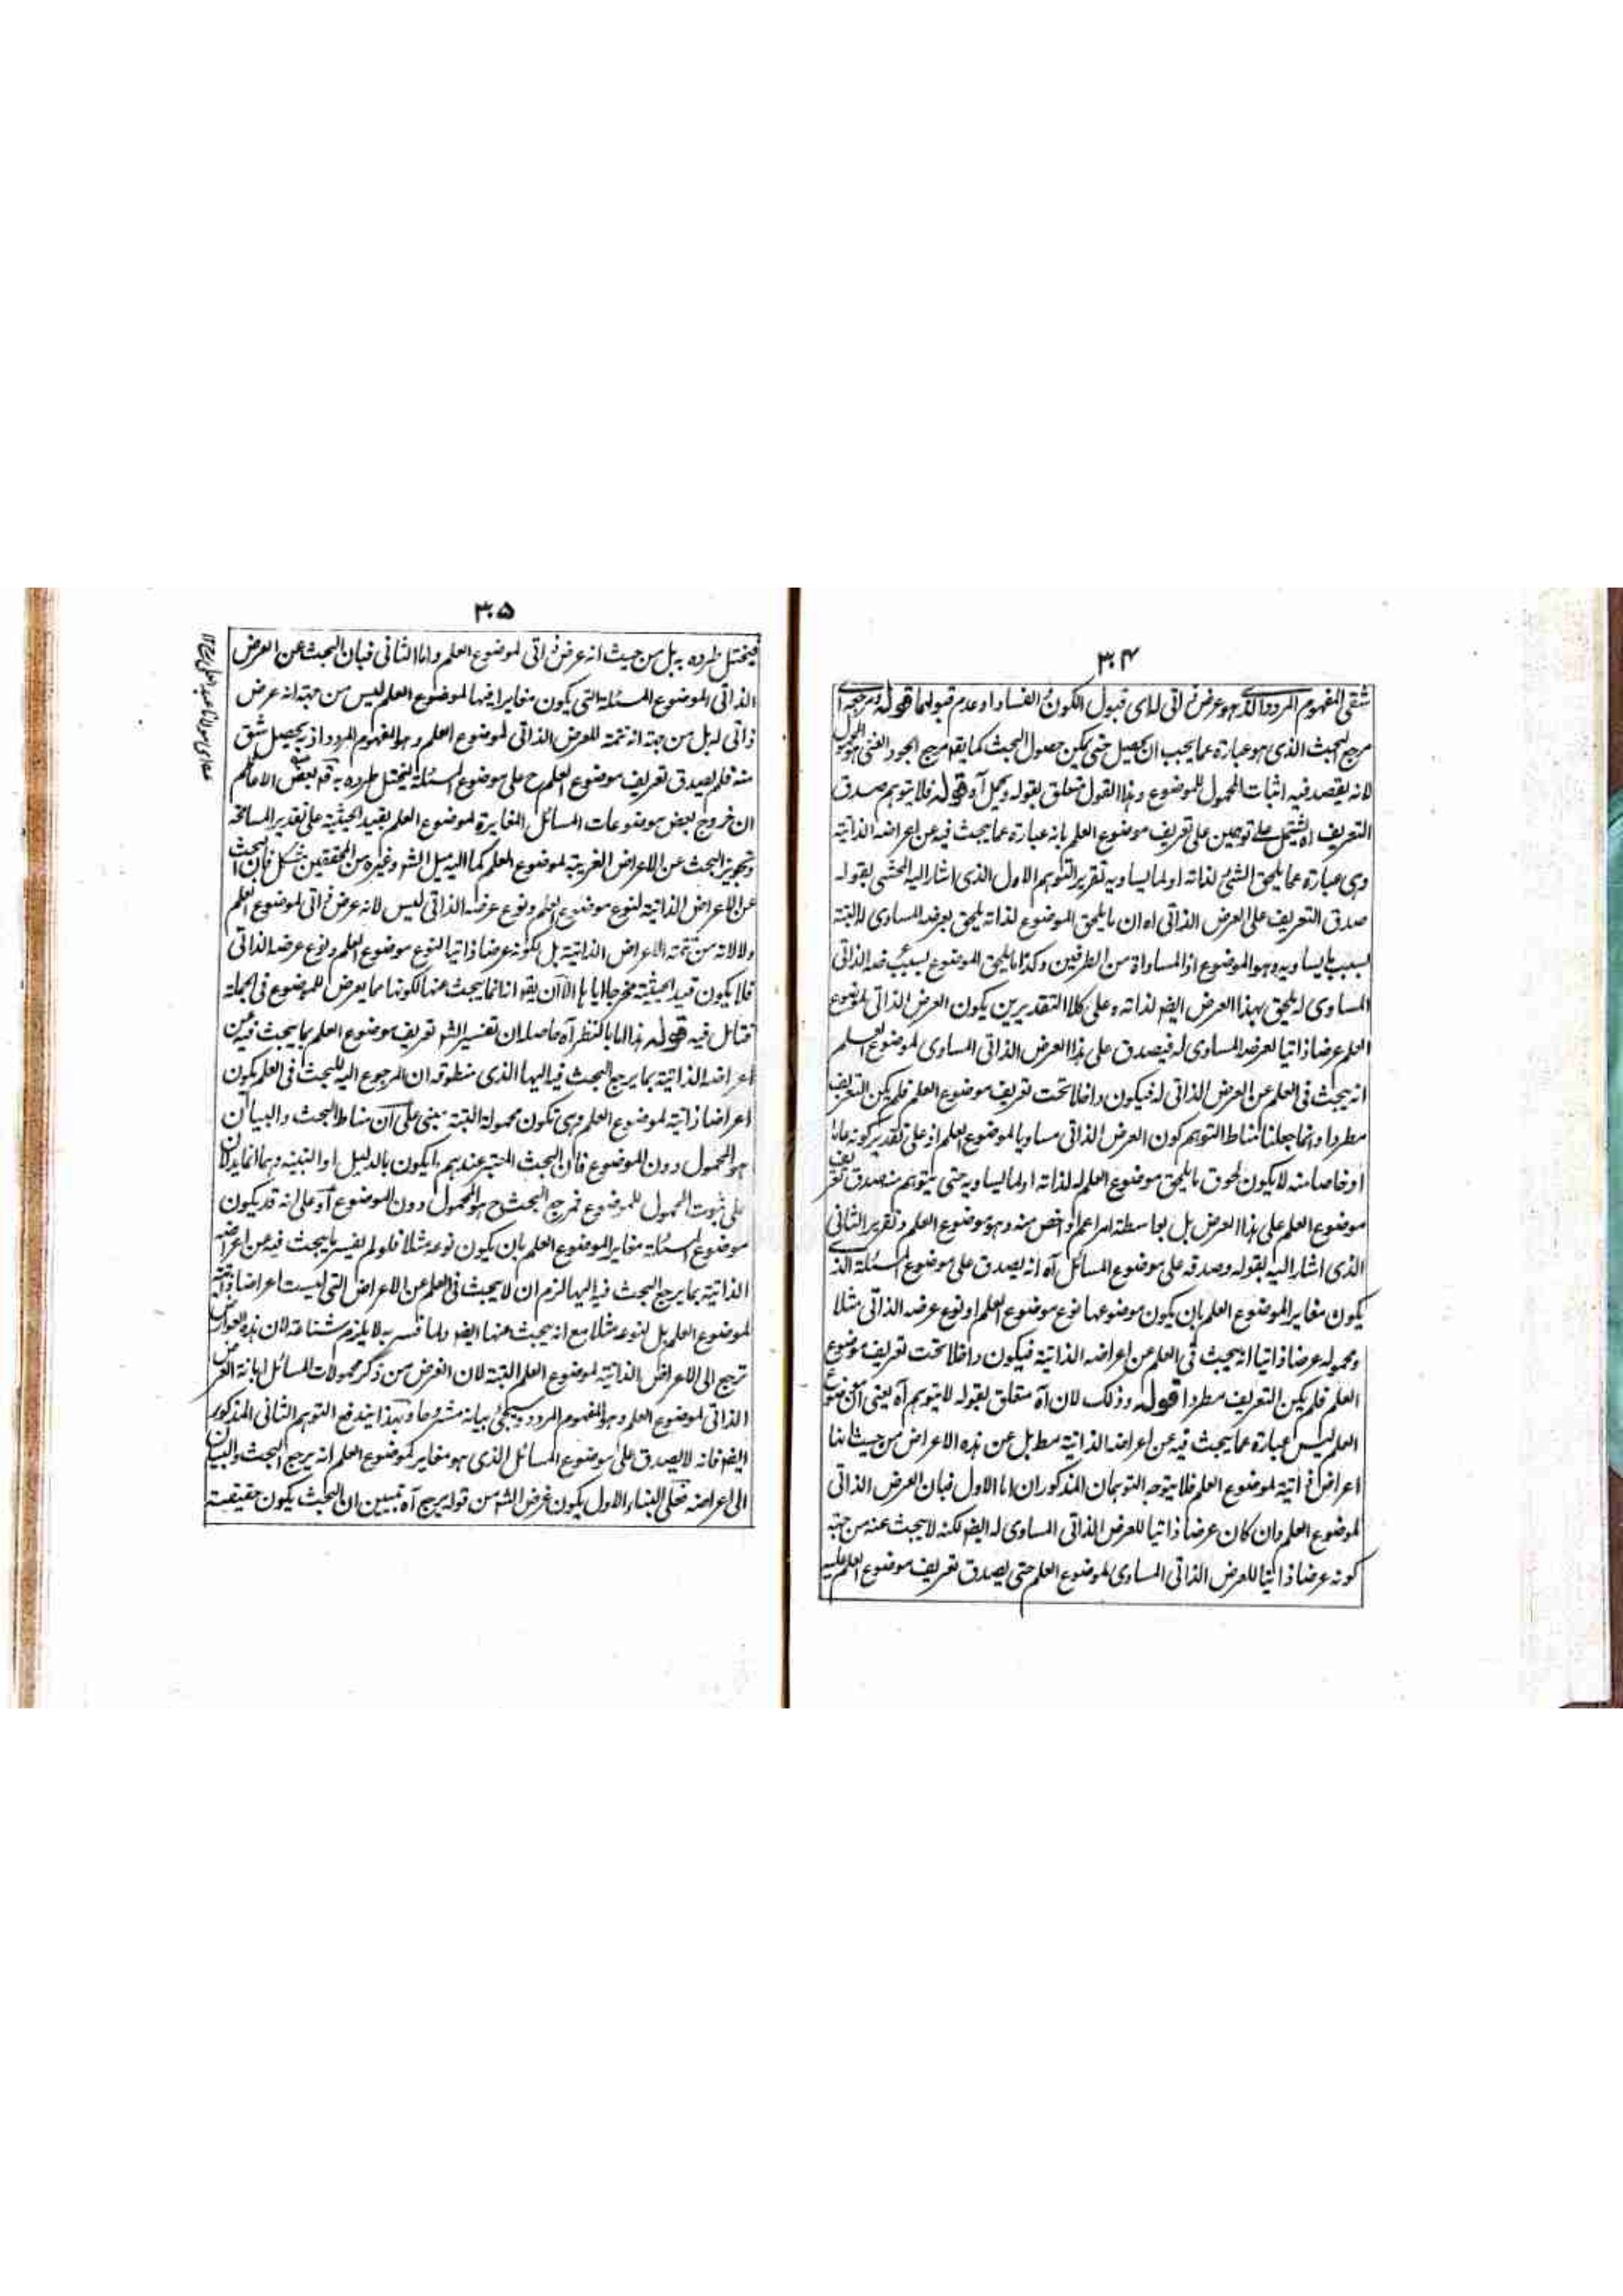 ٣٠٤
شقى المفهوم المردد الذى هو عرض ذاتى له اى قبول الكون و الفساد او عدم قبولهما قوله ومرجعه اه
مرجع البحث الذى هو عبارة عما يجب ان يحصل حتى يمكن حصول البحث كما يقه مرجع الجود الغنى هو المحمول
لانه يقصد فيه اثبات المحمول للموضوع وهذا القول متعلق بقوله ويحمل آه قوله فلا يتوهم صدق
التعريف اه يشتمل على توهمين على تعريف موضوع العلم بانه عبارة عما يبحث فيه عن اعراضه الذاتية
وهى عبارة عما يلحق الشئ لذاته او لما يساويه تقرير التوهم الاول الذى اشار اليه المحشى بقوله
صدق التعريف على العرض الذاتى اه ان ما يلحق الموضوع لذاته يلحق بعرضه المساوى له البتة
بسبب ما يساويه وهو الموضوع اذ المساواة من الطرفين وكذا ما يلحق الموضوع بسبب عرضه الذاتى
المساوى له يلحق بهذا العرض ايضه لذاته وعلى كلا التقديرين يكون العرض الذاتى لموضوع
العلم عرضا ذاتيا لعرضه المساوى له فيصدق على هذا العرض الذاتى المساوى لموضوع العلم
انه يبحث فى العلم عن العرض الذاتى له فيكون داخلا تحت تعريف موضوع العلم فلم يكن التعريف
مطردا وانما جعلنا مناط التوهم كون العرض الذاتى مساويا لموضوع العلم اذ على تقدير كونه عاما
او خاصا منه لا يكون لحوق ما يلحق موضوع العلم له لذاته او لما يساويه حتى يتوهم منه صدق تعريف
موضوع العلم على هذا العرض بل بواسطة امر اعم او اخص منه وهو موضوع العلم وتقرير الثانى
الذى اشار اليه بقوله وصدقه على موضوع المسائل آه انه يصدق على موضوع المسئلة الذى
يكون مغايرا لموضوع العلم بان يكون موضوعها نوع موضوع العلم او نوع عرضه الذاتى مثلا
ومحموله عرضا ذاتيا انه يبحث فى العلم عن اعراضه الذاتية فيكون داخلا تحت تعريف موضوع
العلم فلم يكن التعريف مطردا قوله وذلك لان آه متعلق بقوله لا يتوهم آه يعنى ان موضوع
العلم ليس عبارة عما يبحث فيه عن اعراضه الذاتية مط بل عن هذه الاعراض من حيث انها
اعراض ذاتية لموضوع العلم فلا يتوجه التوهمان المذكوران اما الاول فبان العرض الذاتى
لموضوع العلم وان كان عرضا ذاتيا للعرض الذاتى المساوى له ايضه لكنه لا يبحث عنه من جهة
كونه عرضا ذاتيا للعرض الذاتى المساوى لموضوع العلم حتى يصدق تعريف موضوع العلم عليه
٣٠٥
فيختل طرده به بل من حيث انه عرض ذاتى لموضوع العلم واما الثانى فبان البحث عن العرض
الذاتى لموضوع المسئلة التى يكون مغايرا فيها لموضوع العلم ليس من جهة انه عرض
ذاتى له بل من جهة انه تتمة للعرض الذاتى لموضوع العلم وهو المفهوم المردد اذ به يحصل شق
منه فلم يصدق تعريف موضوع العلم ح على موضوع المسئلة ليختل طرده به قه بعض الاعاظم
ان خروج بعض موضوعات المسائل المغايرة لموضوع العلم بقيد الحيثية على تقدير المسامحة
وتجويز البحث عن الاعراض الغريبة لموضوع العلم كما اليه ميل الشه وغيره من المحققين مشكل فان البحث
عن الاعراض الذاتية لنوع موضوع العلم ونوع عرضه الذاتى ليس لانه عرض ذاتى لموضوع العلم
ولا لانه من تتمة الاعراض الذاتية بل لكونه عرضا ذاتيا لنوع موضوع العلم ونوع عرضه الذاتى
فلا يكون قيد الحيثية مخرجا اياها الا ان يقه انا انما يبحث عنها لكونها مما يعرض للموضوع فى الجملة
فتامل فيه قوله هذا اما بالنظر آه حاصله ان تفسير الشه تعريف موضوع العلم بما يبحث فيه عن
اعراضه الذاتية بما يرجع البحث فيه اليها الذى منطوقه ان المرجوع اليه للبحث فى العلم يكون
اعراضا ذاتية لموضوع العلم وهى تكون محمولة البتة مبنى على ان مناط البحث والبيان
هو المحمول دون الموضوع فان البحث المعتبر عندهم ما يكون بالدليل او التنبيه وهما انما يدلان
على ثبوت المحمول للموضوع فمرجع البحث ح هو المحمول دون الموضوع او على انه قد يكون
موضوع المسئلة مغايرا لموضوع العلم بان يكون نوعه مثلا فلو لم يفسر ما يبحث فيه عن اعراضه
الذاتية بما يرجع البحث فيه اليها لزم ان لا يبحث فى العلم عن الاعراض التى ليست اعراضا ذاتية
لموضوع العلم بل لنوعه مثلا مع انه يبحث عنها ايضه ولما فسر به لا يلزم شناعة لان هذه العوارض
ترجع الى الاعراض الذاتية لموضوع العلم البتة لان الغرض من ذكر محمولات المسائل ابانة العرض
الذاتى لموضوع العلم وهو المفهوم المردد وسيجئ بيانه مشروحا وبهذا يندفع التوهم الثانى المذكور
ايضه فانه لا يصدق على موضوع المسائل الذى هو مغاير لموضوع العلم انه يرجع البحث والبيان
الى اعراضه فعلى البناء الاول يكون غرض الشه من قوله يرجع آه تبيين ان البحث يكون حقيقة